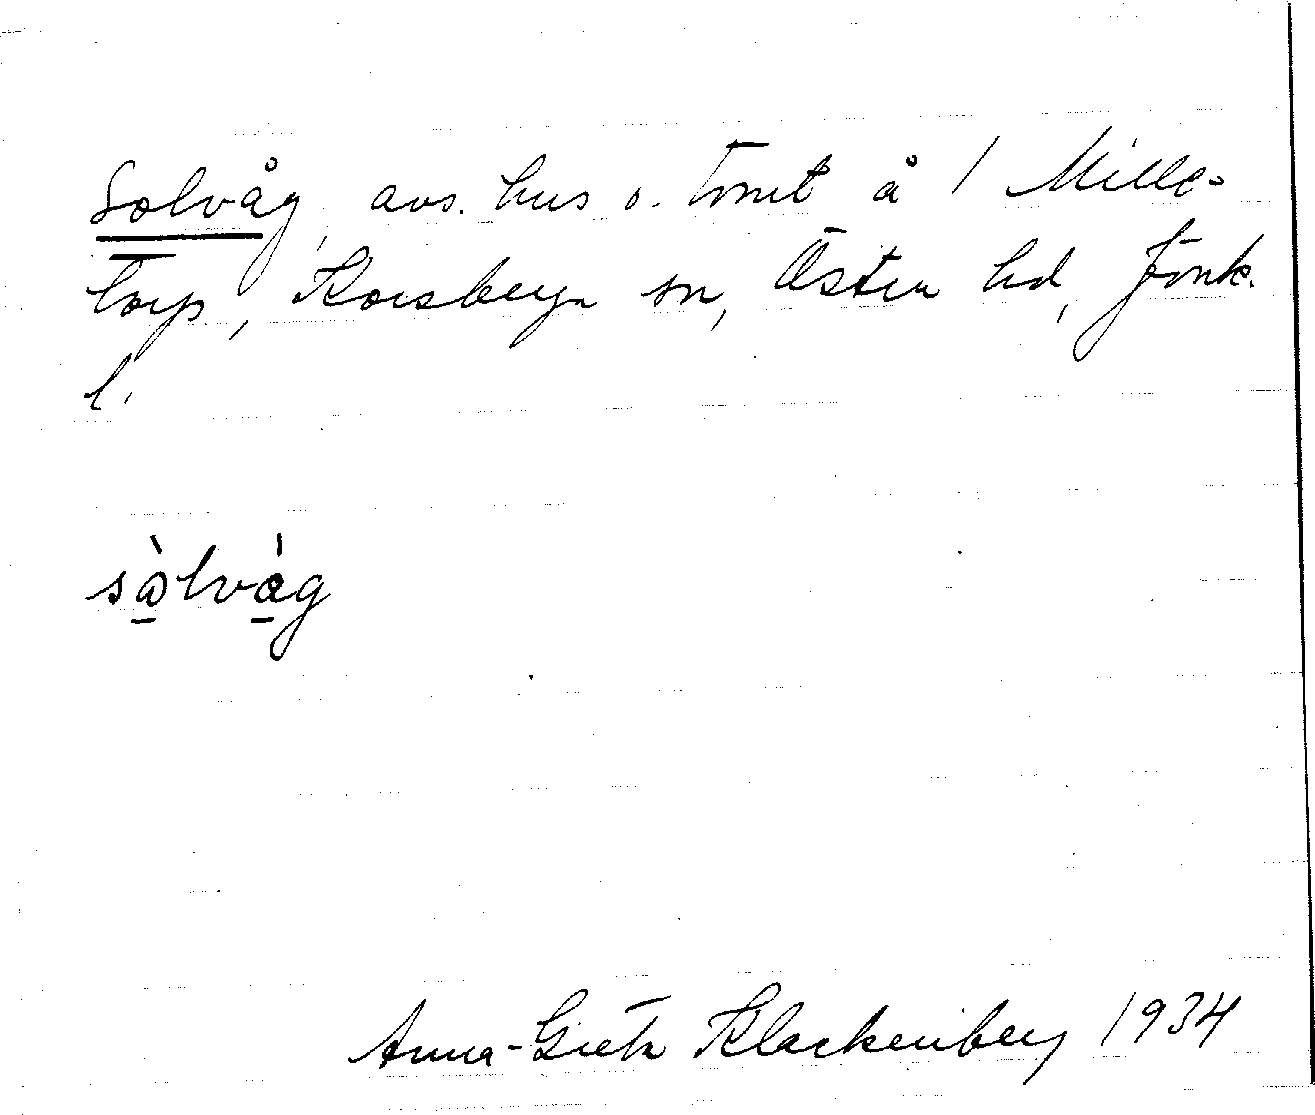 Solvåg, avs. hus o. tomt å 1 Mille-
torp, Korsberga sn, Östra hd, Jönk.
l.
sòlvág
Anna-Greta Klackenberg 1934